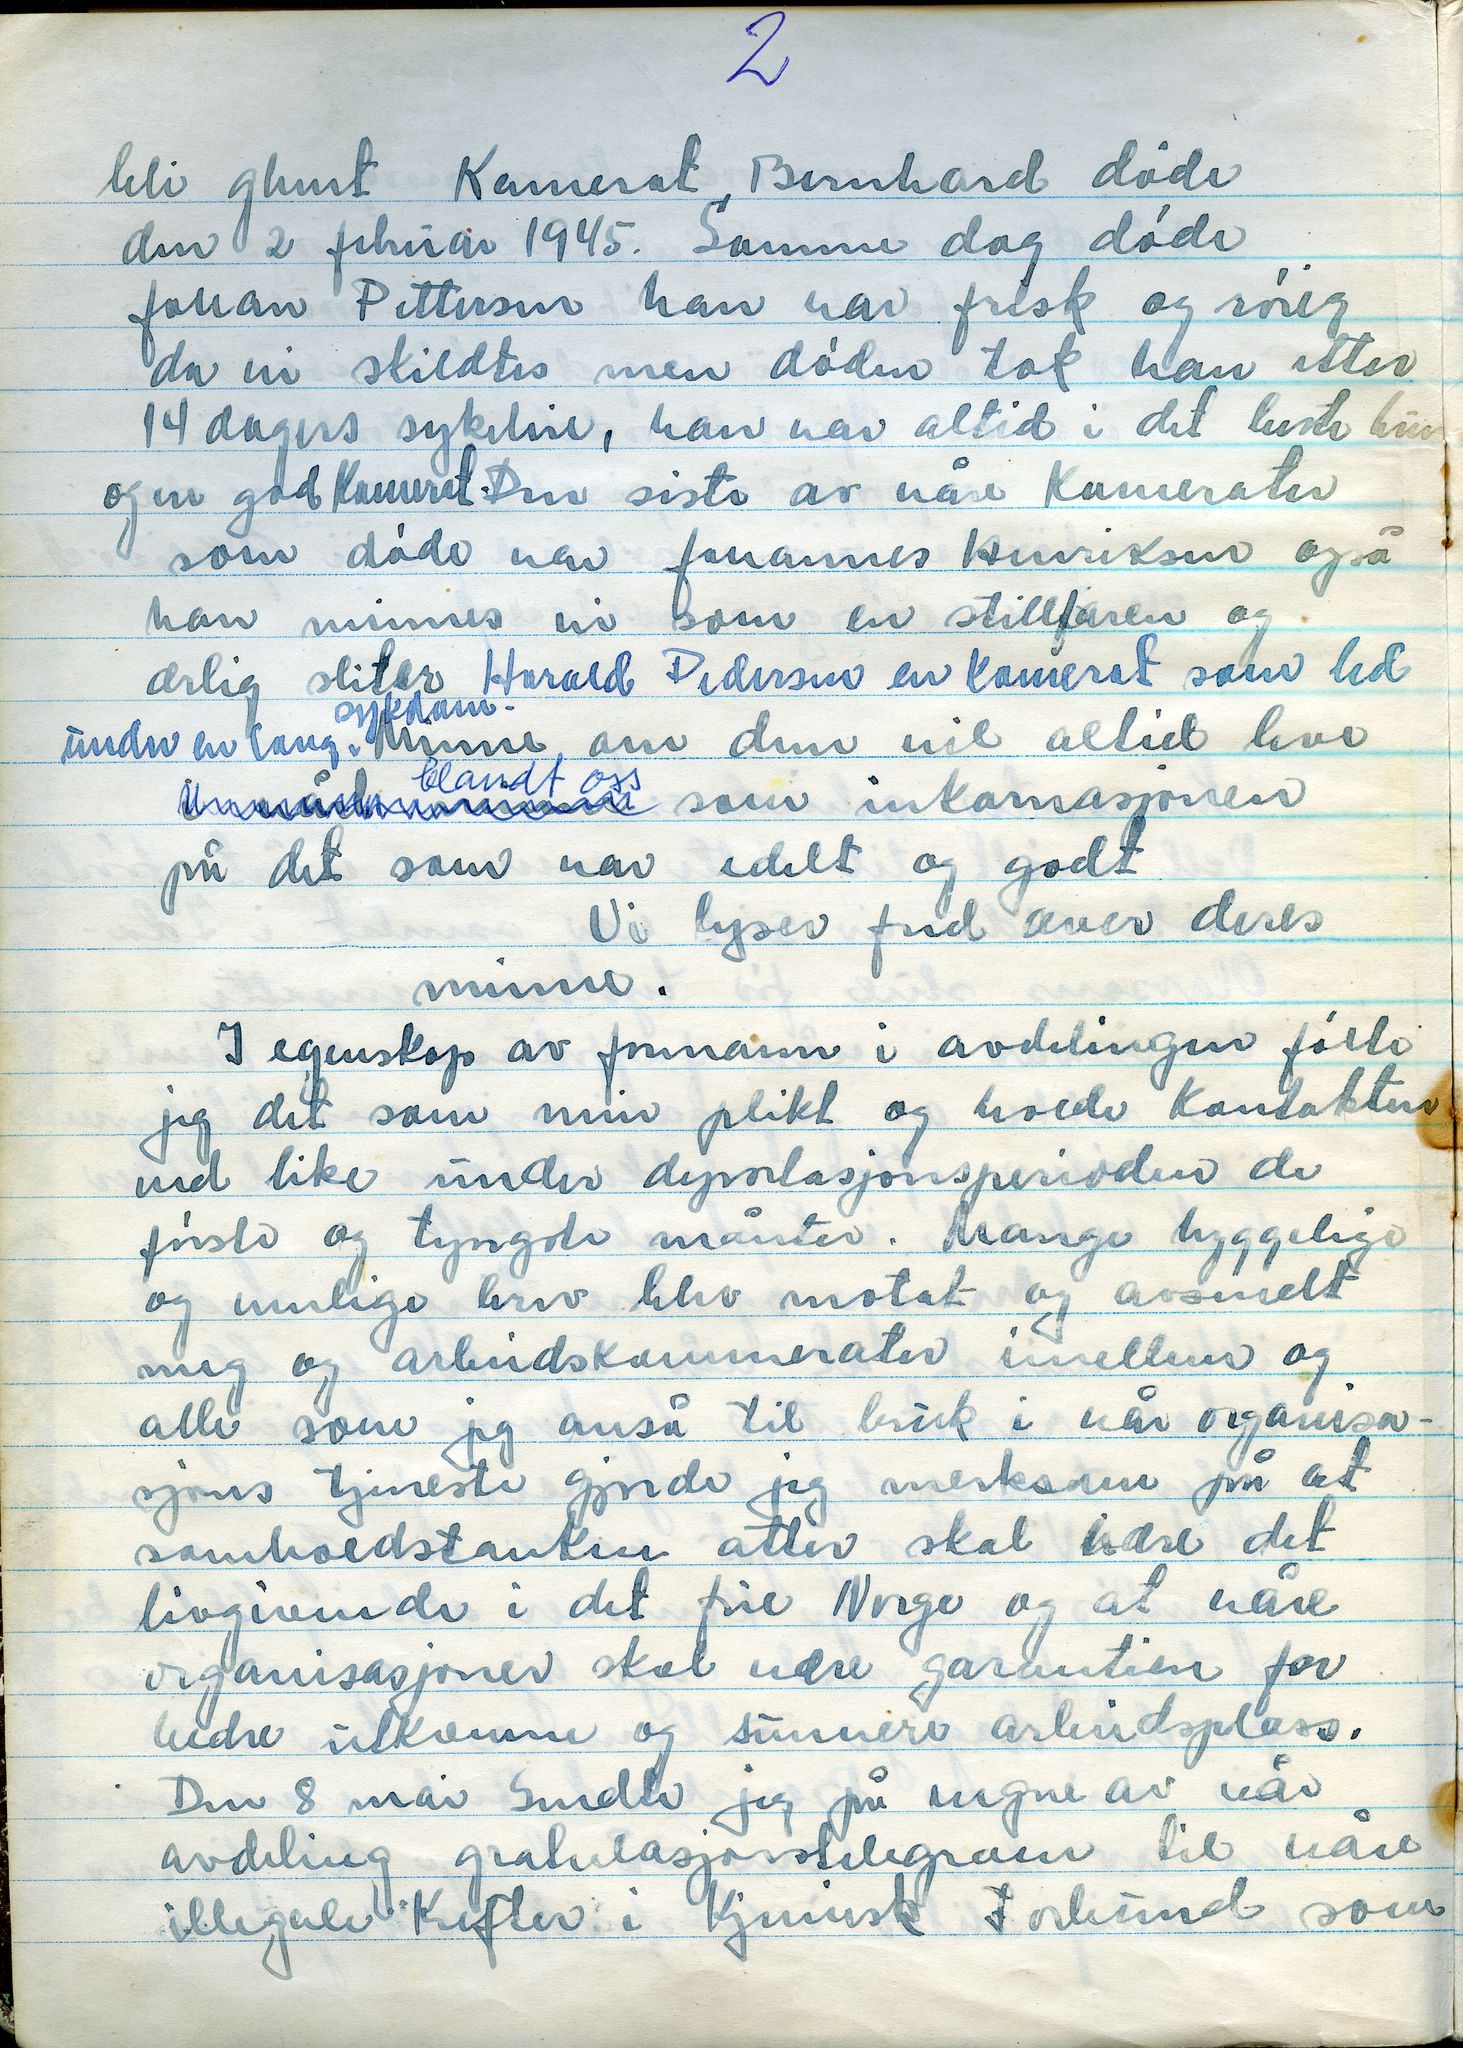 2
bli glemt Kamerat, Bernhard døde
den 2 febuar 1945. Samme dag døde
Johan Pettersen han var frisk og røreg
da vi skildtes men døden tok han etter
14 dagers sykeleie, han var altid i det beste
og en god Kamerat. Den siste av våre Kamerater
som døde var Johannes Henriksen også
han minnes vi som en stillfaren og
ærlig sliter Harald Pedersen en Kamerat som led
sykdom.
under en lang. Minne om dem vil altid leve
blandt oss
som inkarnasjonen
på det som var edelt og godt
Vi lyser fred over deres
minne.
I egenskap av formann i avdelingen følte
jeg det som min plikt og holde Kontakten
ved like under deportasjonsperioden de
første og tyngste månter. Mange hyggelige
og vennlige brev blev motat og avsendt
meg og arbeidskammerater imellem og
alle som jeg anså til bruk i vår organisa-
sjons tjeneste gjorde jeg merksam på at
samholdstanken atter skal være det
livgivende i det frie Norge og at våre
organisasjoner skal være garantien for
bedre utkomme og sunnere arbeidsplass.
Den 8 mai Sendte jeg på vegne av vår
avdeling gratulasjonstelegram til våre
illegale Krefter i Kjemisk Forbund som